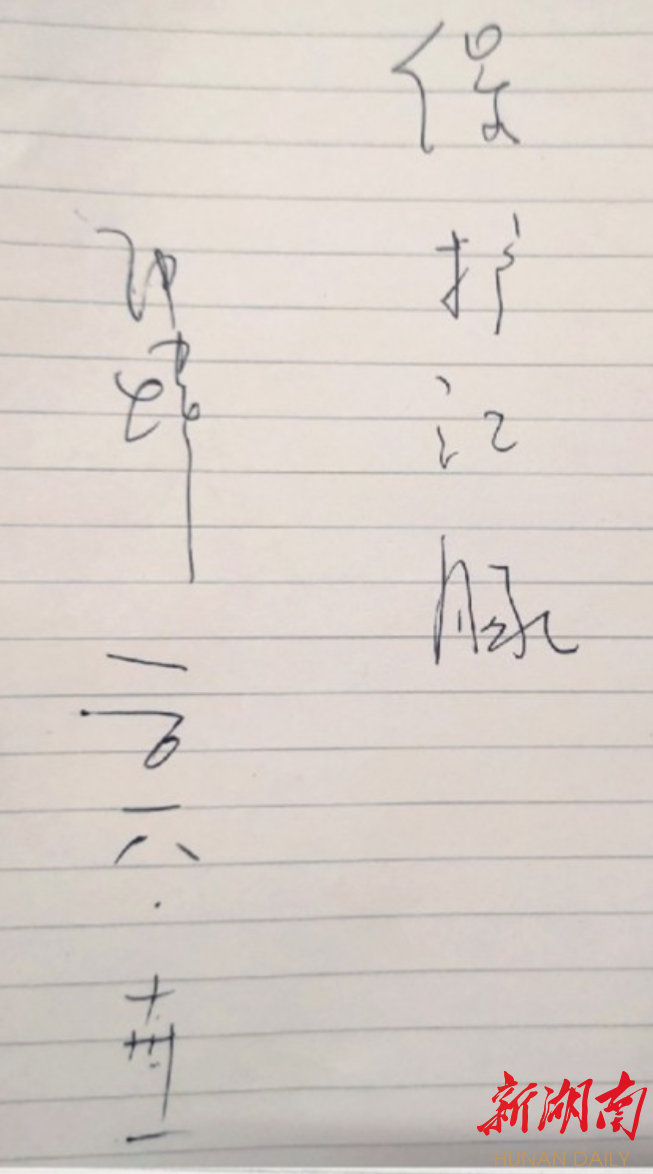 保护江豚
二〇一八·十·卅一
新湖南
HUNAN DAILY